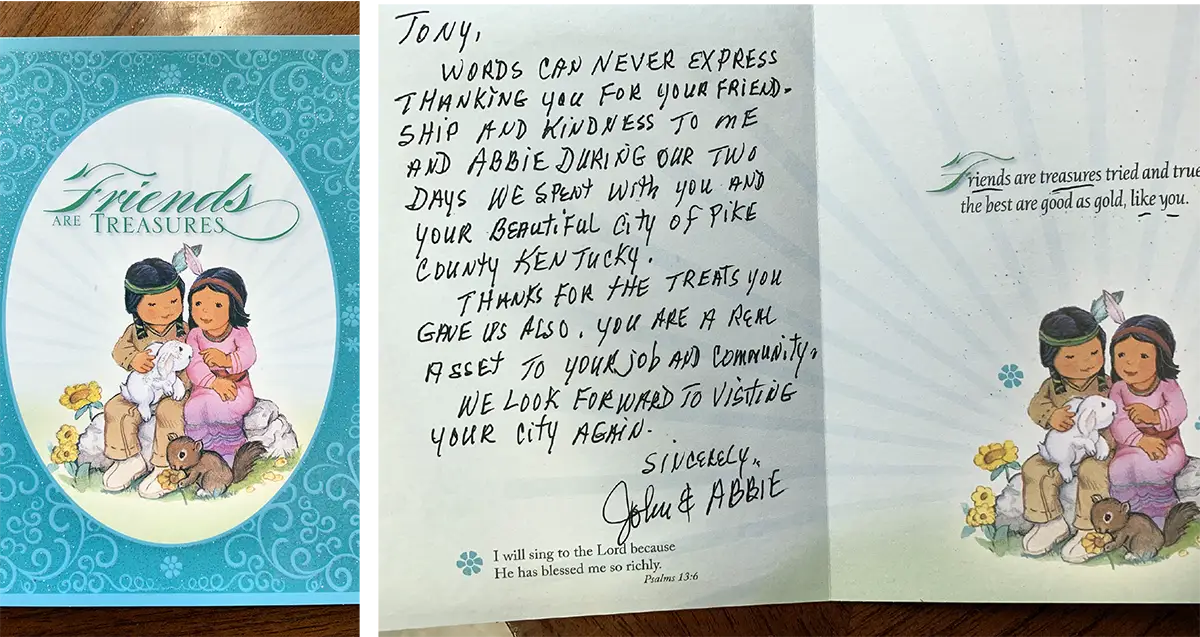 Friends
ARE TREASURES
TONY,
WORDS CAN NEVER EXPRESS
THANKING YOU FOR YOUR FRIEND-
SHIP AND KINDNESS TO ME
AND ABBIE DURING OUR TWO
DAYS WE SPENT WITH YOU AND
YOUR BEAUTIFUL CITY OF PIKE
COUNTY KENTUCKY.
THANKS FOR THE TREATS YOU
GAVE US ALSO. YOU ARE A REAL
ASSET TO YOUR JOB AND COMMUNITY.
WE LOOK FORWARD TO VISITING
YOUR CITY AGAIN.
SINCERELY,
John & ABBIE
I will sing to the Lord because
He has blessed me so richly.
Psalms 13:6
Friends are treasures tried and true
the best are good as gold, like you.